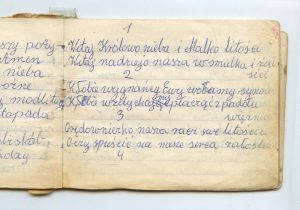 szy poży
ermen
nieba
órne
y modlit
topada
liskal
rodzy
1
Witaj Królowo nieba i Matko litości
Witaj nadziejo nasza w smutku i żał
ości
2
K Tobie wygnańcy Ewy wołamy synowie
K Tobie wzdychając płacząc z padołu
więźnio
3
Orędowniczko nasza racz swe litościw
Oczy spuścić na nasze serca żałośliw
4